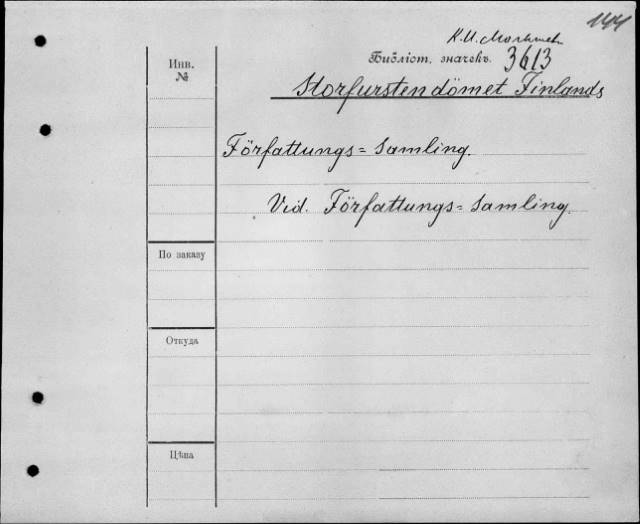 144
К. И.
Бібліот. значекъ 3613
Инв.
№
Storfurstendömet Finlands
Författungs=Samling.
Vid. Författungs=Samling.
По заказу
Откуда
Цѣна